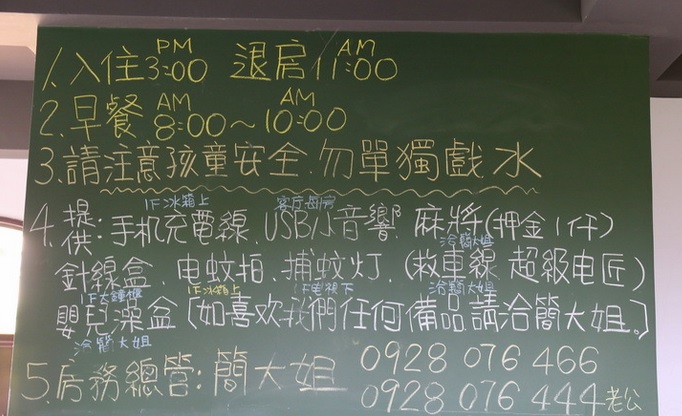 1.入住PM3:00 退房AM11:00
2.早餐AM8:00～AM10:00
3.請注意孩童安全.勿單獨戲水
1F冰箱上 客厅每房
4.提供:手机充電線、USB小音響 麻將(押金1仟)
洽簡大姐
針線盒、电蚊拍、捕蚊灯、(救車線 超級电匠)
1F大鐘櫃 1F冰箱上 1F电視下 洽簡大姐
嬰兒澡盆〔如喜欢我們任何備品請洽簡大姐。〕
洽簡大姐
5.房務總管:簡大姐 0928 076 466
0928 076 444老公